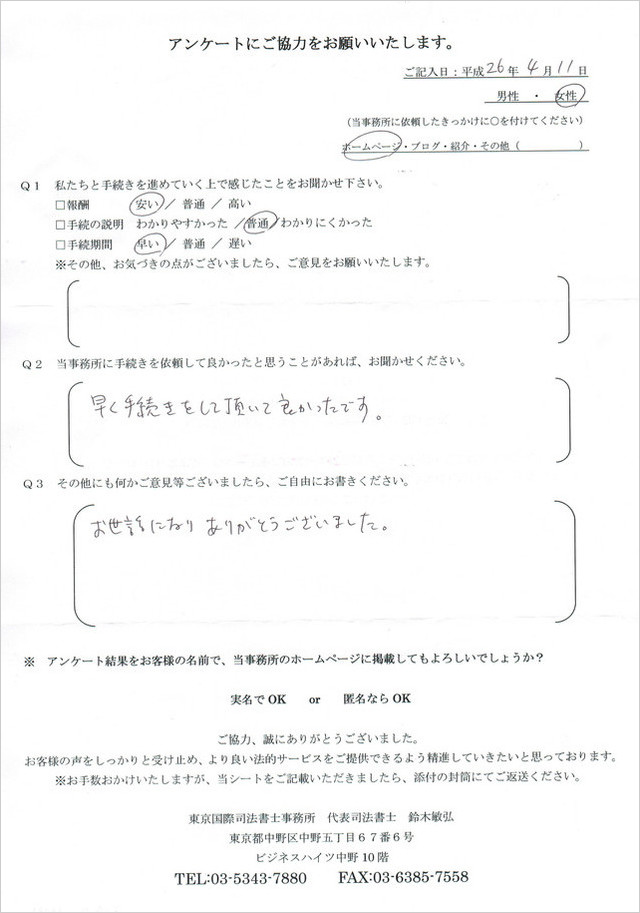 アンケートにご協力をお願いいたします。
ご記入日：平成26年 4月 11日
男性 ・ 女性
（当事務所に依頼したきっかけに○を付けてください）
ホームページ・ブログ・紹介・その他（　　　　　）
Q１ 私たちと手続きを進めていく上で感じたことをお聞かせ下さい。
□報酬 安い ／ 普通 ／ 高い
□手続の説明 わかりやすかった ／普通／わかりにくかった
□手続期間 早い ／ 普通 ／ 遅い
※その他、お気づきの点がございましたら、ご意見をお願いいたします。
Q２ 当事務所に手続きを依頼して良かったと思うことがあれば、お聞かせください。
早く手続きをして頂いて良かったです。
Q３ その他にも何かご意見等ございましたら、ご自由にお書きください。
お世話になり ありがとうございました。
※ アンケート結果をお客様の名前で、当事務所のホームページに掲載してもよろしいでしょうか？
実名で OK or 匿名なら OK
ご協力、誠にありがとうございました。
お客様の声をしっかりと受け止め、より良い法的サービスをご提供できるよう精進していきたいと思っております。
※お手数おかけいたしますが、当シートをご記載いただきましたら、添付の封筒にてご返送ください。
東京国際司法書士事務所 代表司法書士 鈴木敏弘
東京都中野区中野五丁目６７番６号
ビジネスハイツ中野 10 階
TEL:03-5343-7880 FAX:03-6385-7558